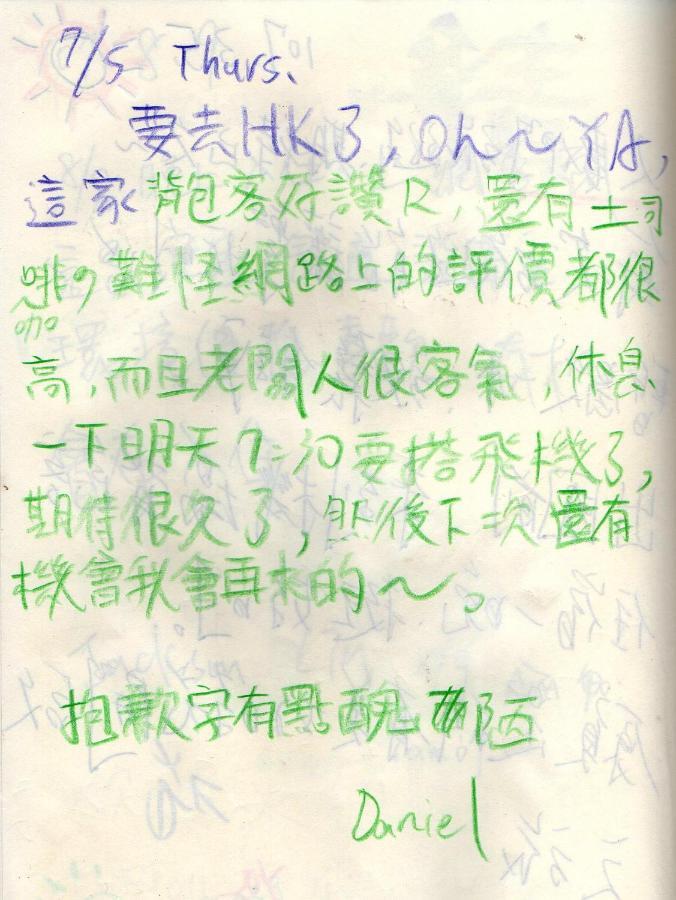 7/5 Thurs.
要去HK了，Oh～YA，
這家背包客好讚R，還有土司
咖啡，難怪網路上的評價都很
高，而且老闆人很客氣，休息
一下明天7:30要搭飛機了，
期待很久了，然後下次還有
機會我會再來的～。
抱歉字有點醜陋
Daniel